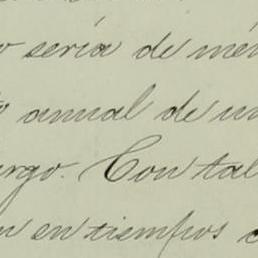 o sería de mé
o anual de un
argo. Con tal
n en tiempos